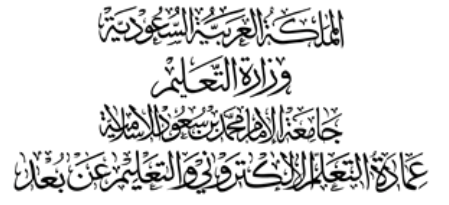 المملكة العربية السعودية
وزارة التعليم
جامعة الإمام محمد بن سعود الإسلامية
عمادة التعلم الإلكتروني والتعليم عن بُعد